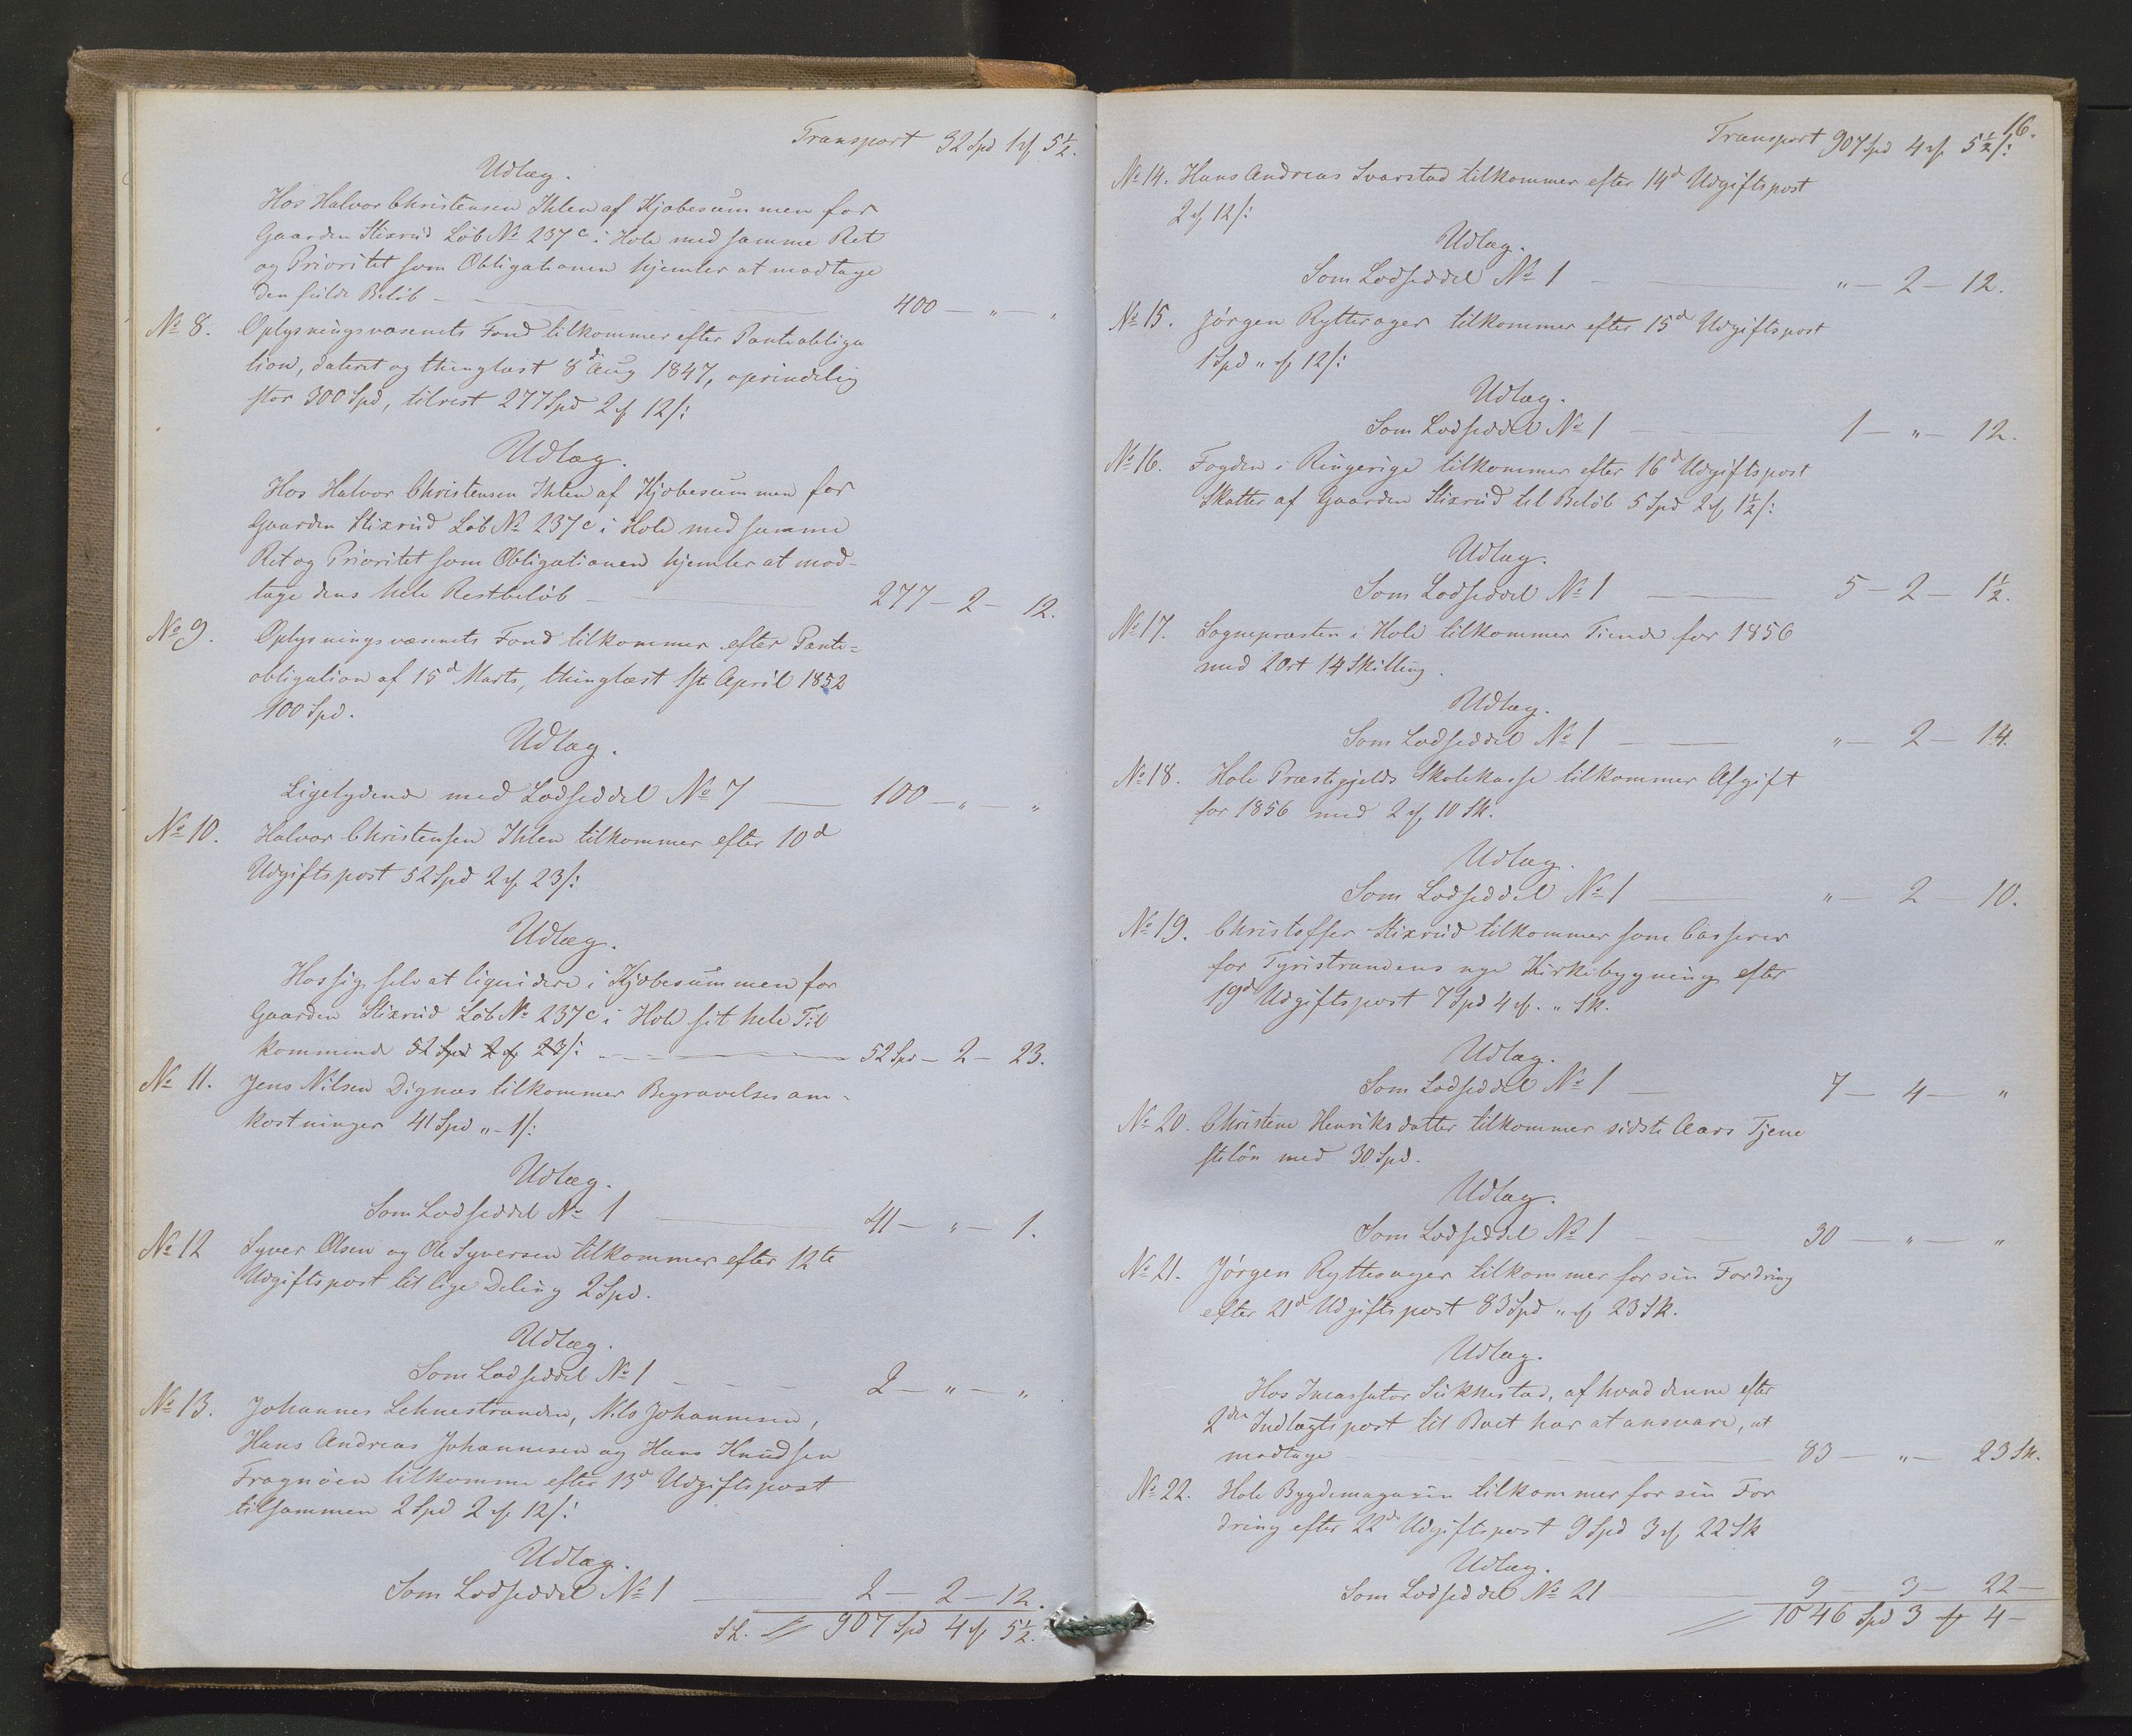 Transport 32 Spd 1 ₰ 5½.
Udlæg.
Hos Halvor Christensen Ihlen af Kjøbesummen for
Gaarden Stixrud Løb No 237c i Hole med samme Ret
og Prioritet som Obligationen hjemler at modtage
den fulde Beløb — 400 — " — "
No 8. Oplysningsvæsenets Fond tilkommer efter Panteobliga
tion, dateret og thinglæst 8d Aug 1847, oprindelig
stor 300 Spd, tilrest 277 Spd 2 ₰ 12 s:
Udlæg.
Hos Halvor Christensen Ihlen af Kjøbesummen for
Gaarden Stixrud Løb No 237c i Hole med samme
Ret og Prioritet som Obligationen hjemler at mod-
tage dens hele Restbeløb — 277 — 2 — 12.
No 9. Oplysningsvæsenets Fond tilkommer efter Pante=
obligation af 15d Marts, thinglæst 1ste April 1852
100 Spd.
Udlæg.
Ligelydende med Lodseddel No 7 — 100 — " — "
No 10. Halvor Christensen Ihlen tilkommer efter 10d
Udgiftspost 52 Spd 2 ₰ 23 s:
Udlæg.
Hos sig selv at liquidere i Kjøbesummen for
Gaarden Stixrud Løb No 237c i Hole sit hele Til
kommende 52 Spd 2 ₰ 23 s: — 52 Spd — 2 — 23.
No 11. Jens Nilsen Dignæs tilkommer Begravelsesom-
kostninger 41 Spd " - 1 s:
Udlæg.
Som Lodseddel No 1 — 41 — " — 1.
No 12 Syver Olsen og Ole Syversen tilkommer efter 12te
Udgiftspost til lige Deling 2 Spd.
Udlæg.
Som Lodseddel No 1 — 2 — " — "
No 13. Johannes Lehnestranden, Nils Johannesen,
Hans Andreas Johannesen og Hans Knudsen
Frognøen tilkomme efter 13d Udgiftspost
tilsammen 2 Spd 2 ₰ 12 s:
Udlæg.
Som Lodseddel No 1 — 2 — 2 — 12.
907 Spd 4 ₰ 5½.
16.
Transport 907 Spd 4 ₰ 5½ s:
No 14. Hans Andreas Svarstad tilkommer efter 14d Udgiftspost
2 ₰ 12 s:
Udlæg.
Som Lodseddel No 1 — " — 2 — 12.
No 15. Jørgen Rytterager tilkommer efter 15d Udgiftspost
1 Spd " ₰ 12 s:
Udlæg.
Som Lodseddel No 1 — 1 — " — 12.
No 16. Fogden i Ringerige tilkommer efter 16d Udgiftspost
Skatter af Gaarden Stixrud til Beløb 5 Spd 2 ₰ 1½ s:
Udlæg.
Som Lodseddel No 1 — 5 — 2 — 1½.
No 17. Sognepræsten i Hole tilkommer Tiende for 1856
med 2 Ort 14 Skilling.
Udlæg.
Som Lodseddel No 1 — " — 2 — 14.
No 18. Hole Præstegjelds Skolekasse tilkommer Afgift
for 1856 med 2 ₰ 10 Sk.
Udlæg.
Som Lodseddel No 1 — " — 2 — 10.
No 19. Christoffer Stixrud tilkommer som Casserer
for Tyristrandens nye Kirkebygning efter
19d Udgiftspost 7 Spd 4 ₰. " Sk.
Udlæg.
Som Lodseddel No 1 — 7 — 4 — "
No 20. Christine Henriksdatter tilkommer sidste Aars Tjene
steløn med 30 Spd.
Udlæg.
Som Lodseddel No 1 — 30 — " — "
No 21. Jørgen Rytterager tilkommer for sin Fordring
efter 21d Udgiftspost 83 Spd " ₰ 23 Sk.
Udlæg.
Hos Incassator Sukkestad, af hvad denne efter
2den Indtægtspost til Boet har at ansvare, at
modtage — 83 — " — 23 Sk.
No 22. Hole Bygdemagazin tilkommer for sin For
dring efter 22d Udgiftspost 9 Spd 3 ₰ 22 Sk
Udlæg.
Som Lodseddel No 21 — 9 — 3 — 22 —
1046 Spd 3 ₰ 4 —